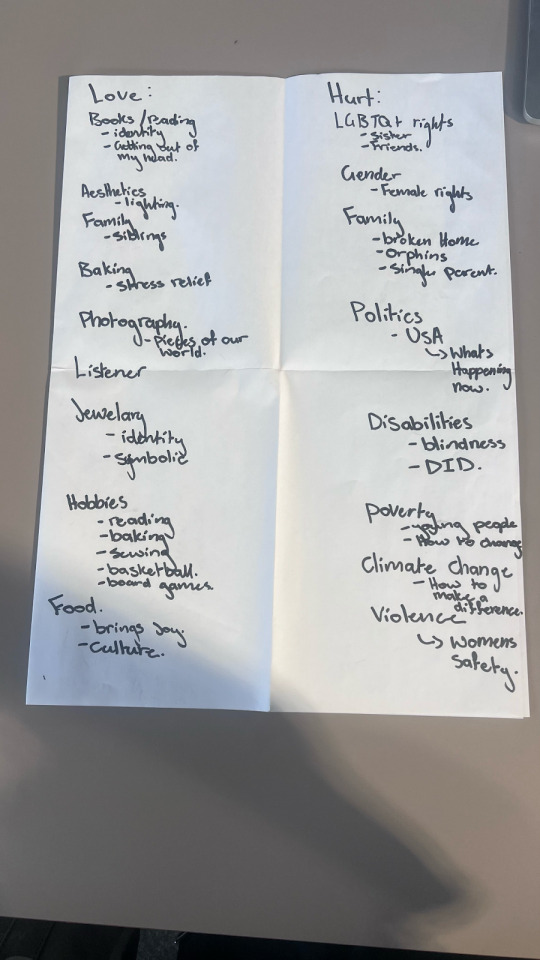 Love:
Books/reading
- identity
- Getting out of
my head.
Aesthetics
- lighting.
Family
- siblings
Baking
- stress relief
Photography.
- Pieces of our
world.
Listener
Jewelary
- identity
- symbolic
Hobbies
- reading
- baking
- sewing
- basketball.
- board games.
Food.
- brings joy.
- culture.
Hurt:
LGBTQ+ rights
- sister
- friends.
Gender
- Female rights
Family
- broken Home
- orphins
- single parent.
Politics
- USA
↳ Whats
Happening
now.
Disabilities
- blindness
- DID.
Poverty
- young people
- How to change
Climate change
- How to
make a
difference.
Violence
↳ Womens
Safety.